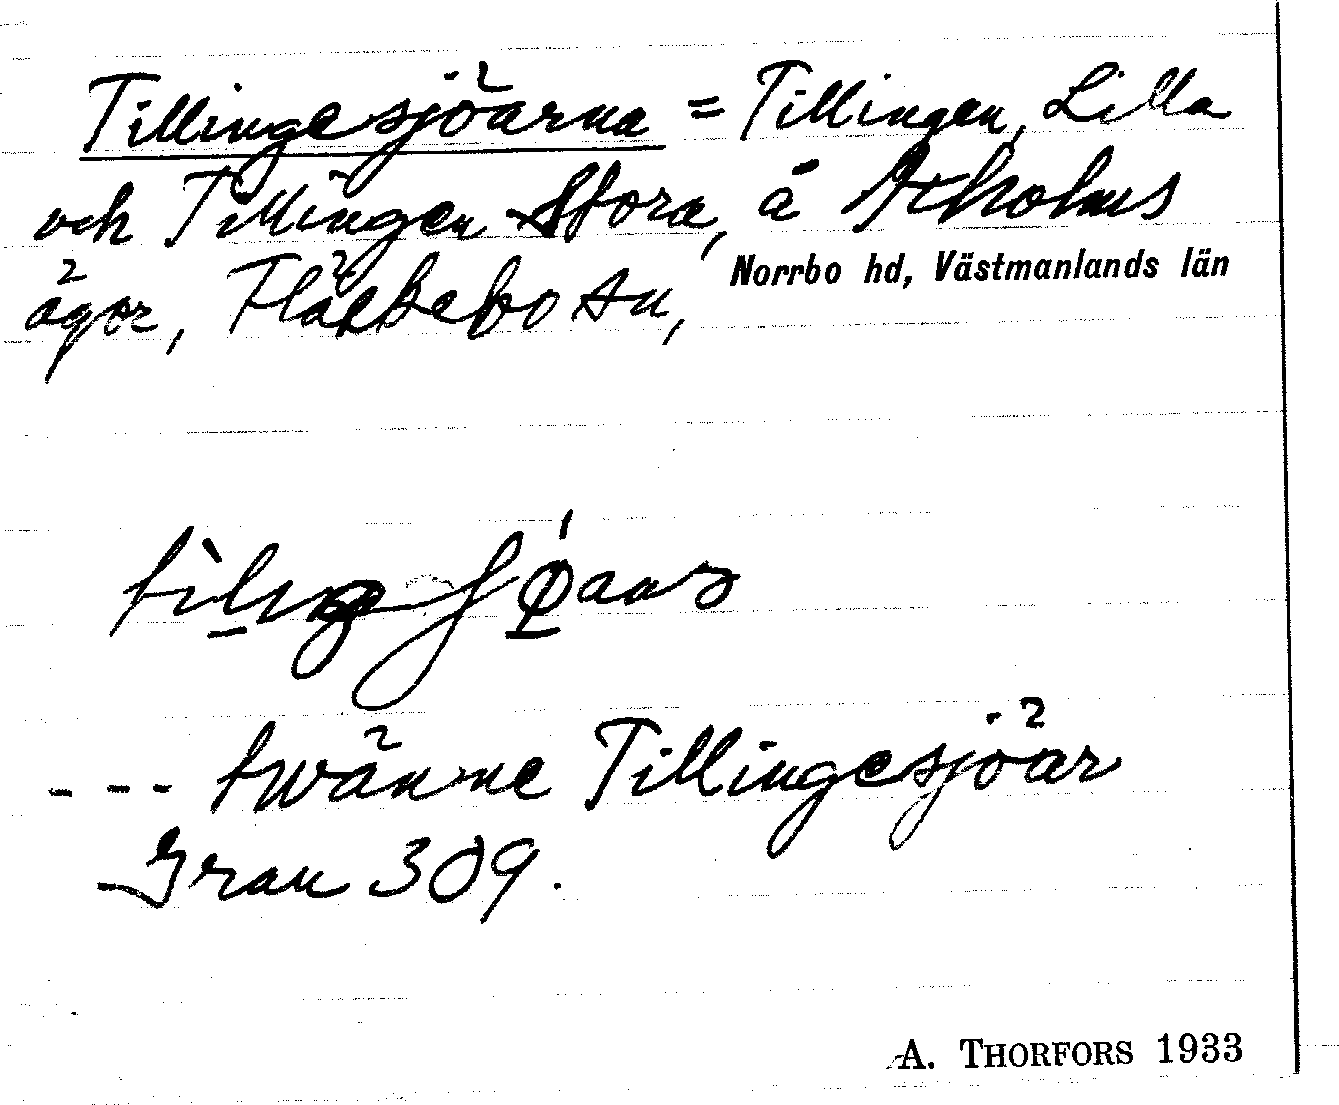 Tillingesjöarna = Tillingen, Lilla
och Tillingen Stora, å
ägor, Fläckebo sn, Norrbo hd, Västmanlands län
--- twänne Tillingesjöar
Grau 309.
A. THORFORS 1933